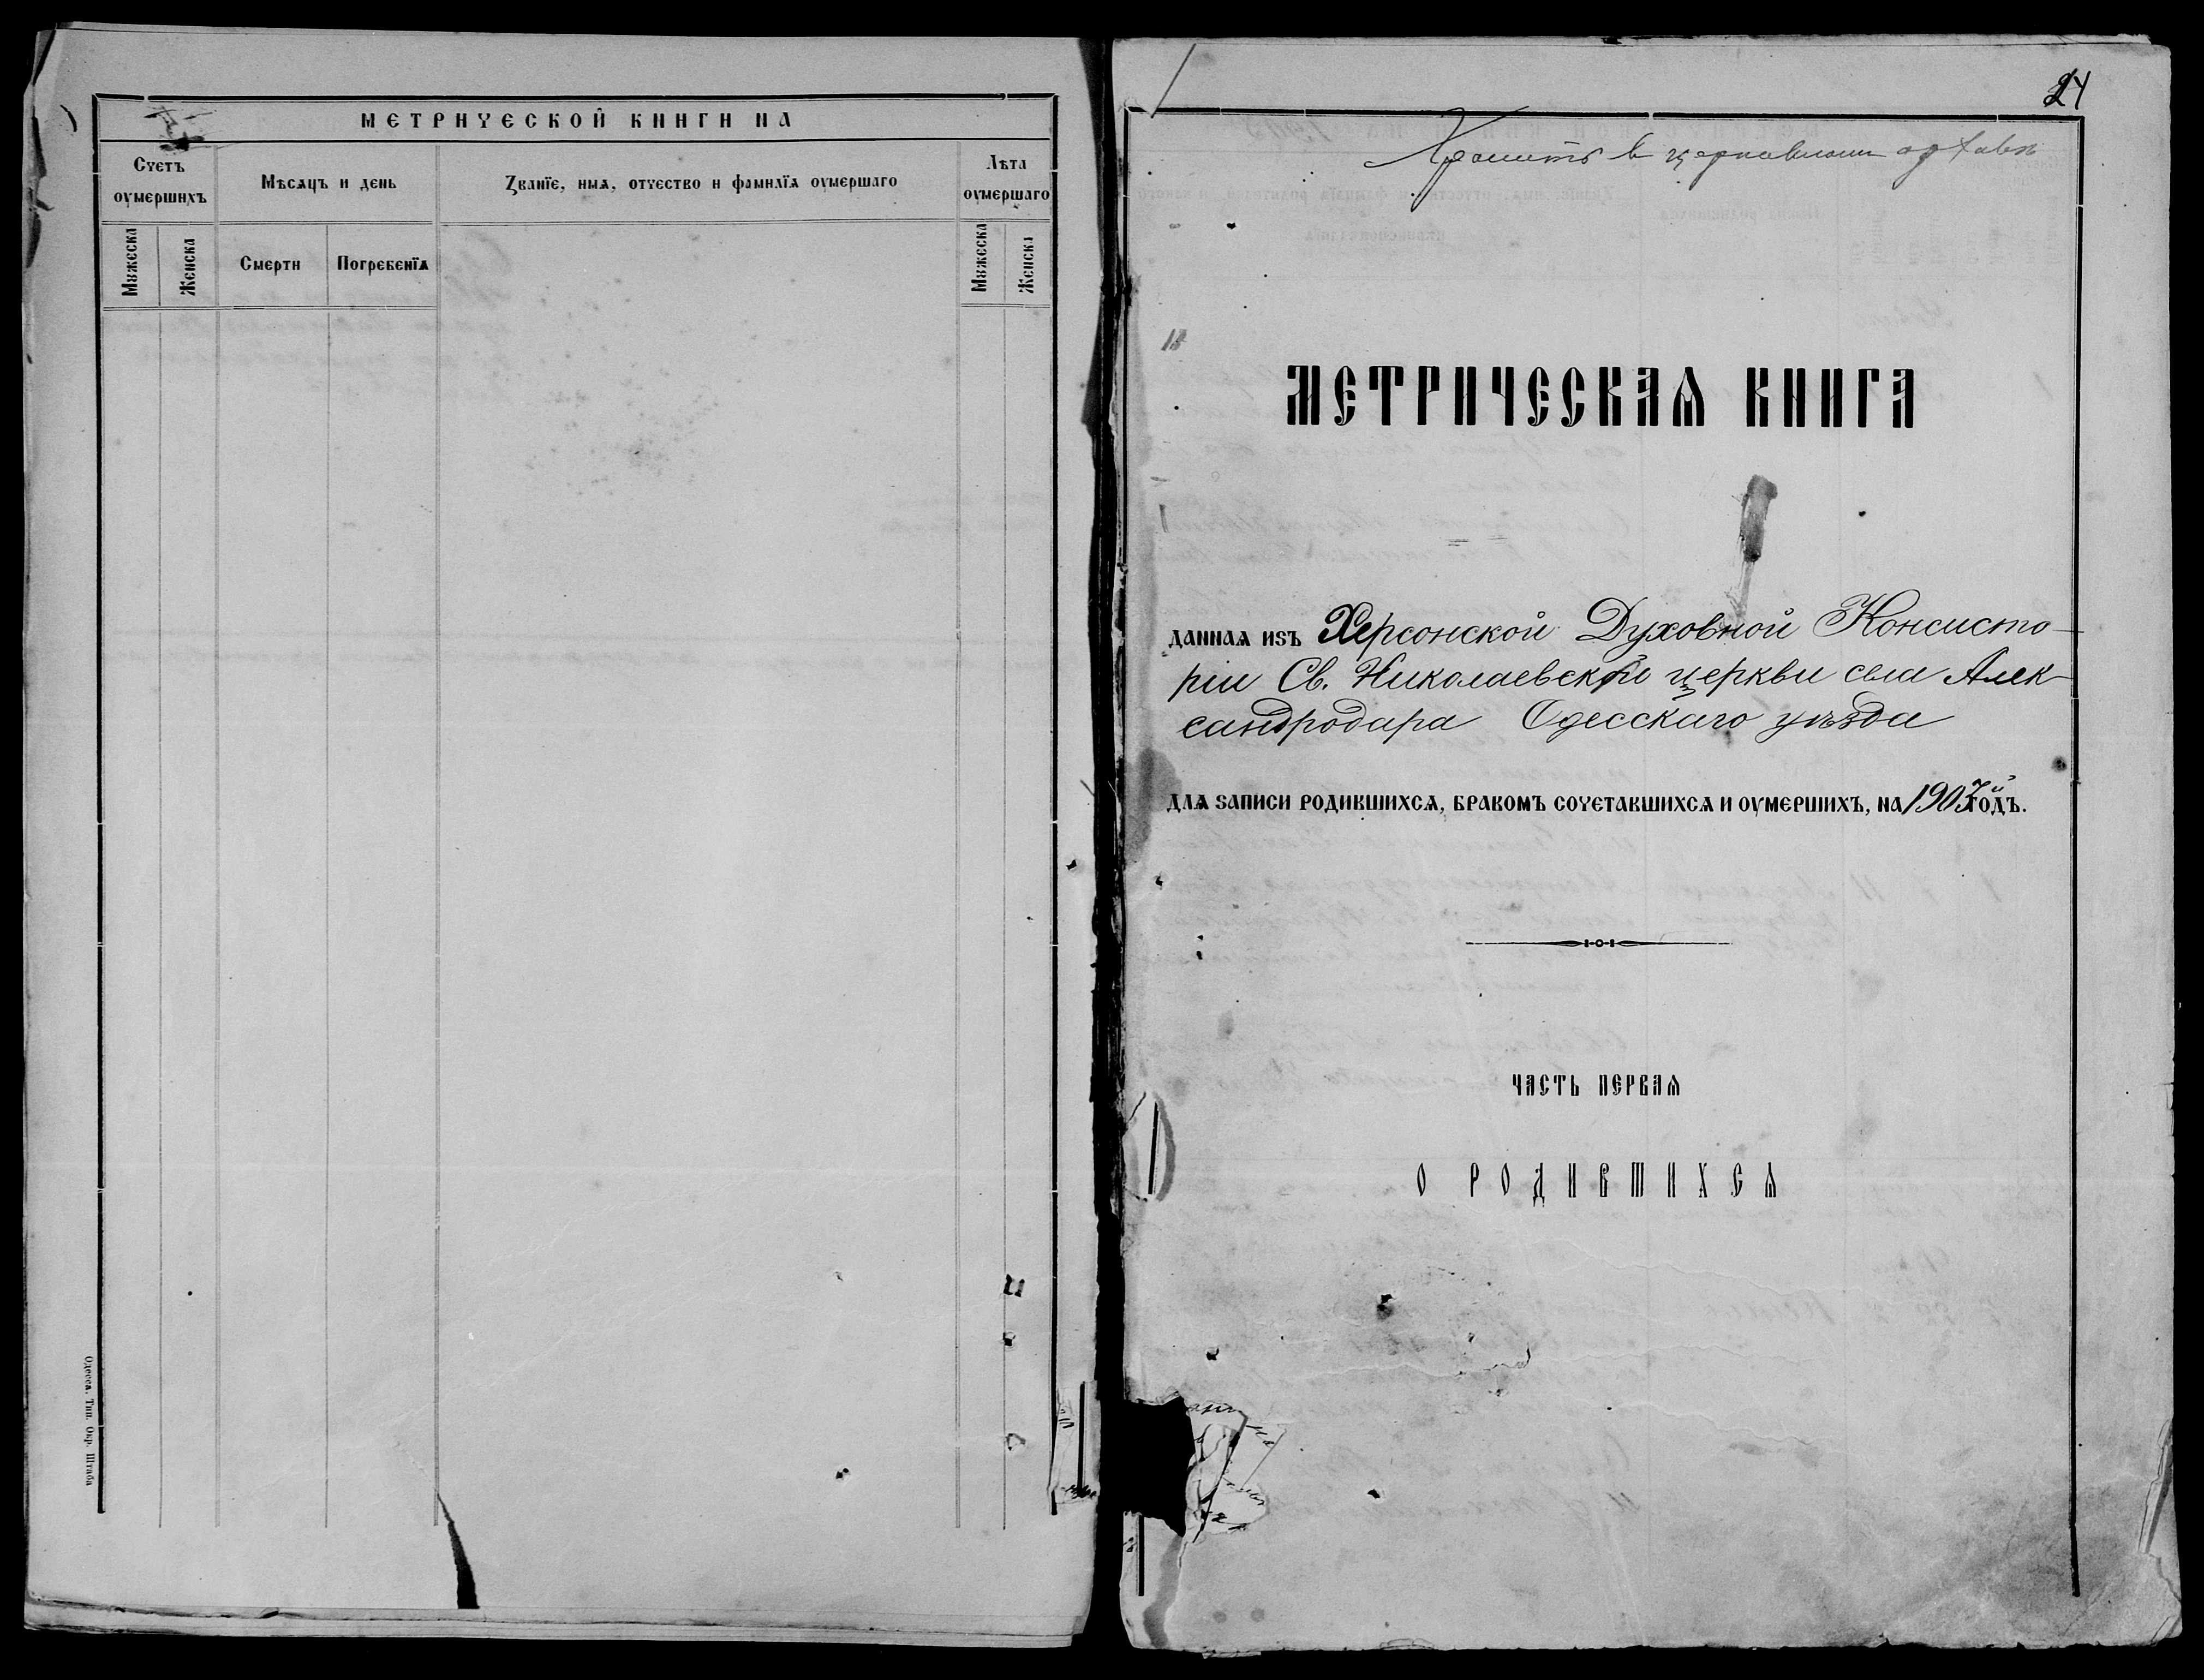 МЕТРИЧЕСКОЙ КНИГИ НА
Счетъ
оумершихъ
Мѣсяцъ и день
Званїе, имя, отчество и фамилїя оумершаго
Лѣта
оумершаго
Мужеска
Женска
Смерти
Погребенїя
Мужеска
Женска
Одесса. Тип. Окр. Штаба
24
Хранить в церковном архиве
МЕТРИЧЕСКАЯ КНИГА
данная изъ Херсонской Духовной Консисто-
ріи Св. Николаевской церкви села Алек-
сандродара Одесскаго уѣзда
для записи родившихся, бракомъ сочетавшихся и оумершихъ, на годъ.
ЧАСТЬ ПЕРВАЯ
О РОДИВШИХСЯ